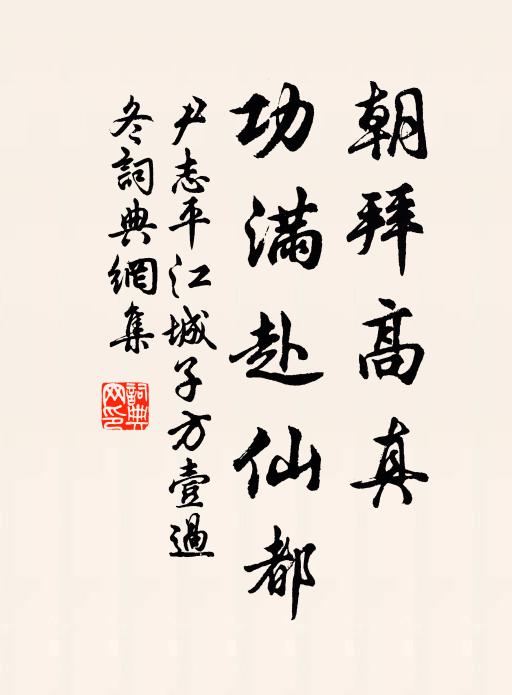 朝拜高真
功滿赴仙都
尹志平江城子方壹過
冬詞典網集
詞典
网印